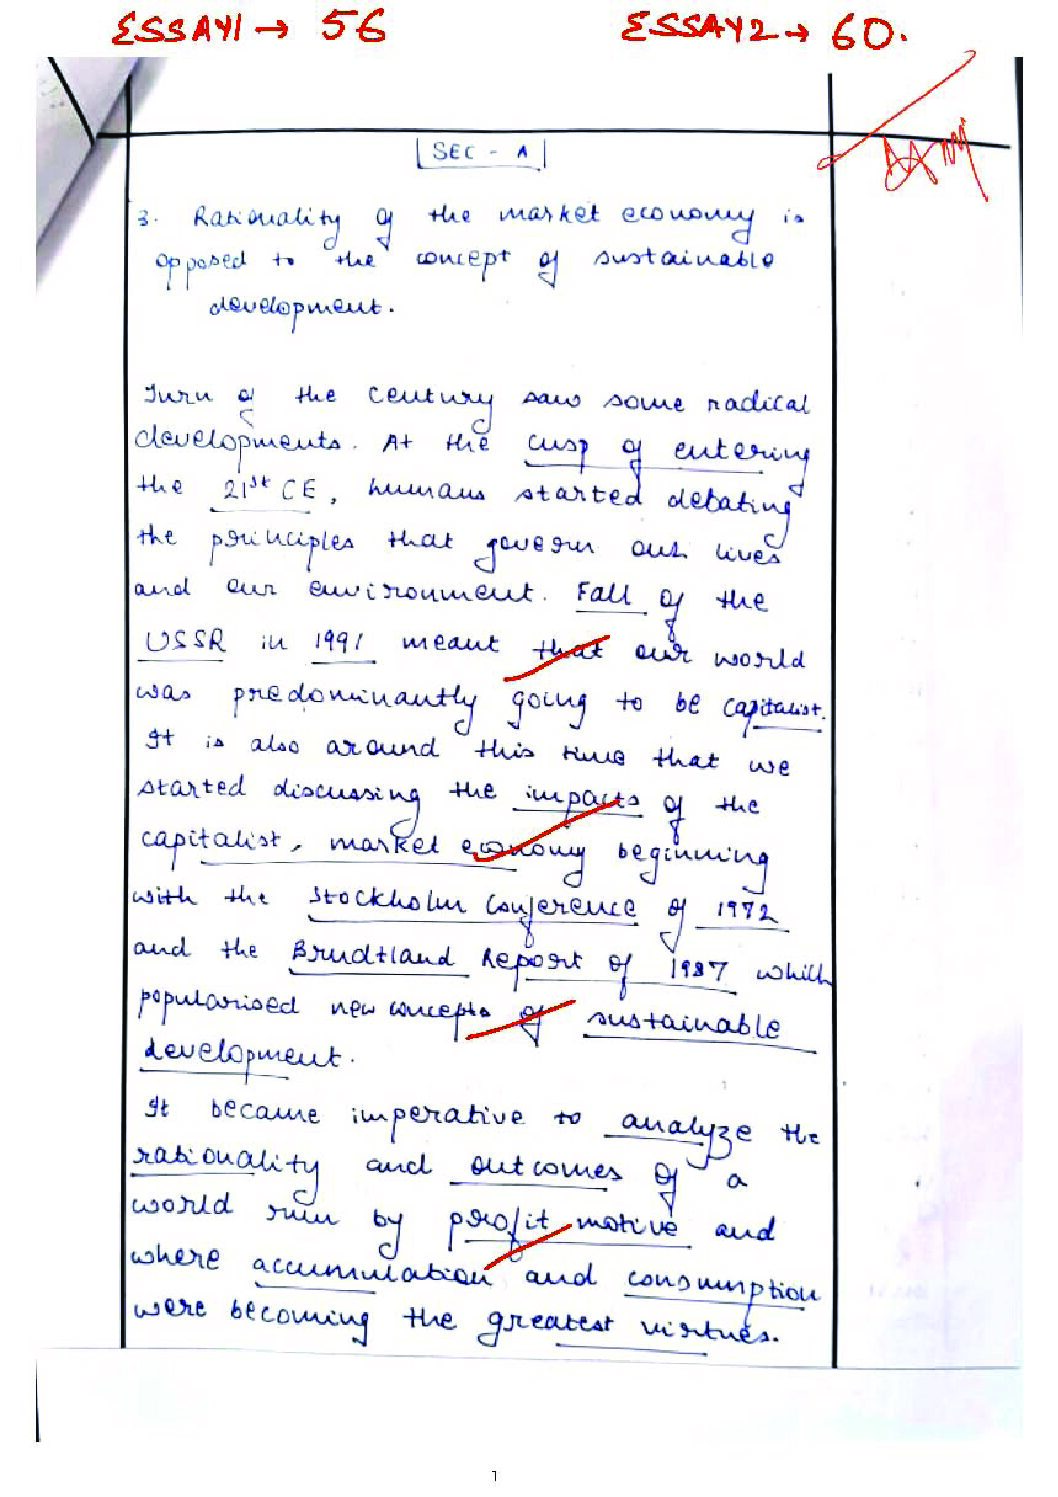 ESSAY1 → 56 ESSAY2 → 60.
SEC - A
3. Rationality of the market economy is
opposed to the concept of sustainable
development.
Turn of the century saw some radical
developments. At the cusp of entering
the 21st CE, humans started debating
the principles that govern our lives
and our environment. Fall of the
USSR in 1991 meant that our world
was predominantly going to be capitalist.
It is also around this time that we
started discussing the impacts of the
capitalist, market economy beginning
with the Stockholm Conference of 1972
and the Brudtland Report of 1987 which
popularised new concepts of sustainable
development.
It became imperative to analyze the
rationality and outcomes of a
world run by profit motive and
where accummulation and consumption
were becoming the greatest virtues.
1